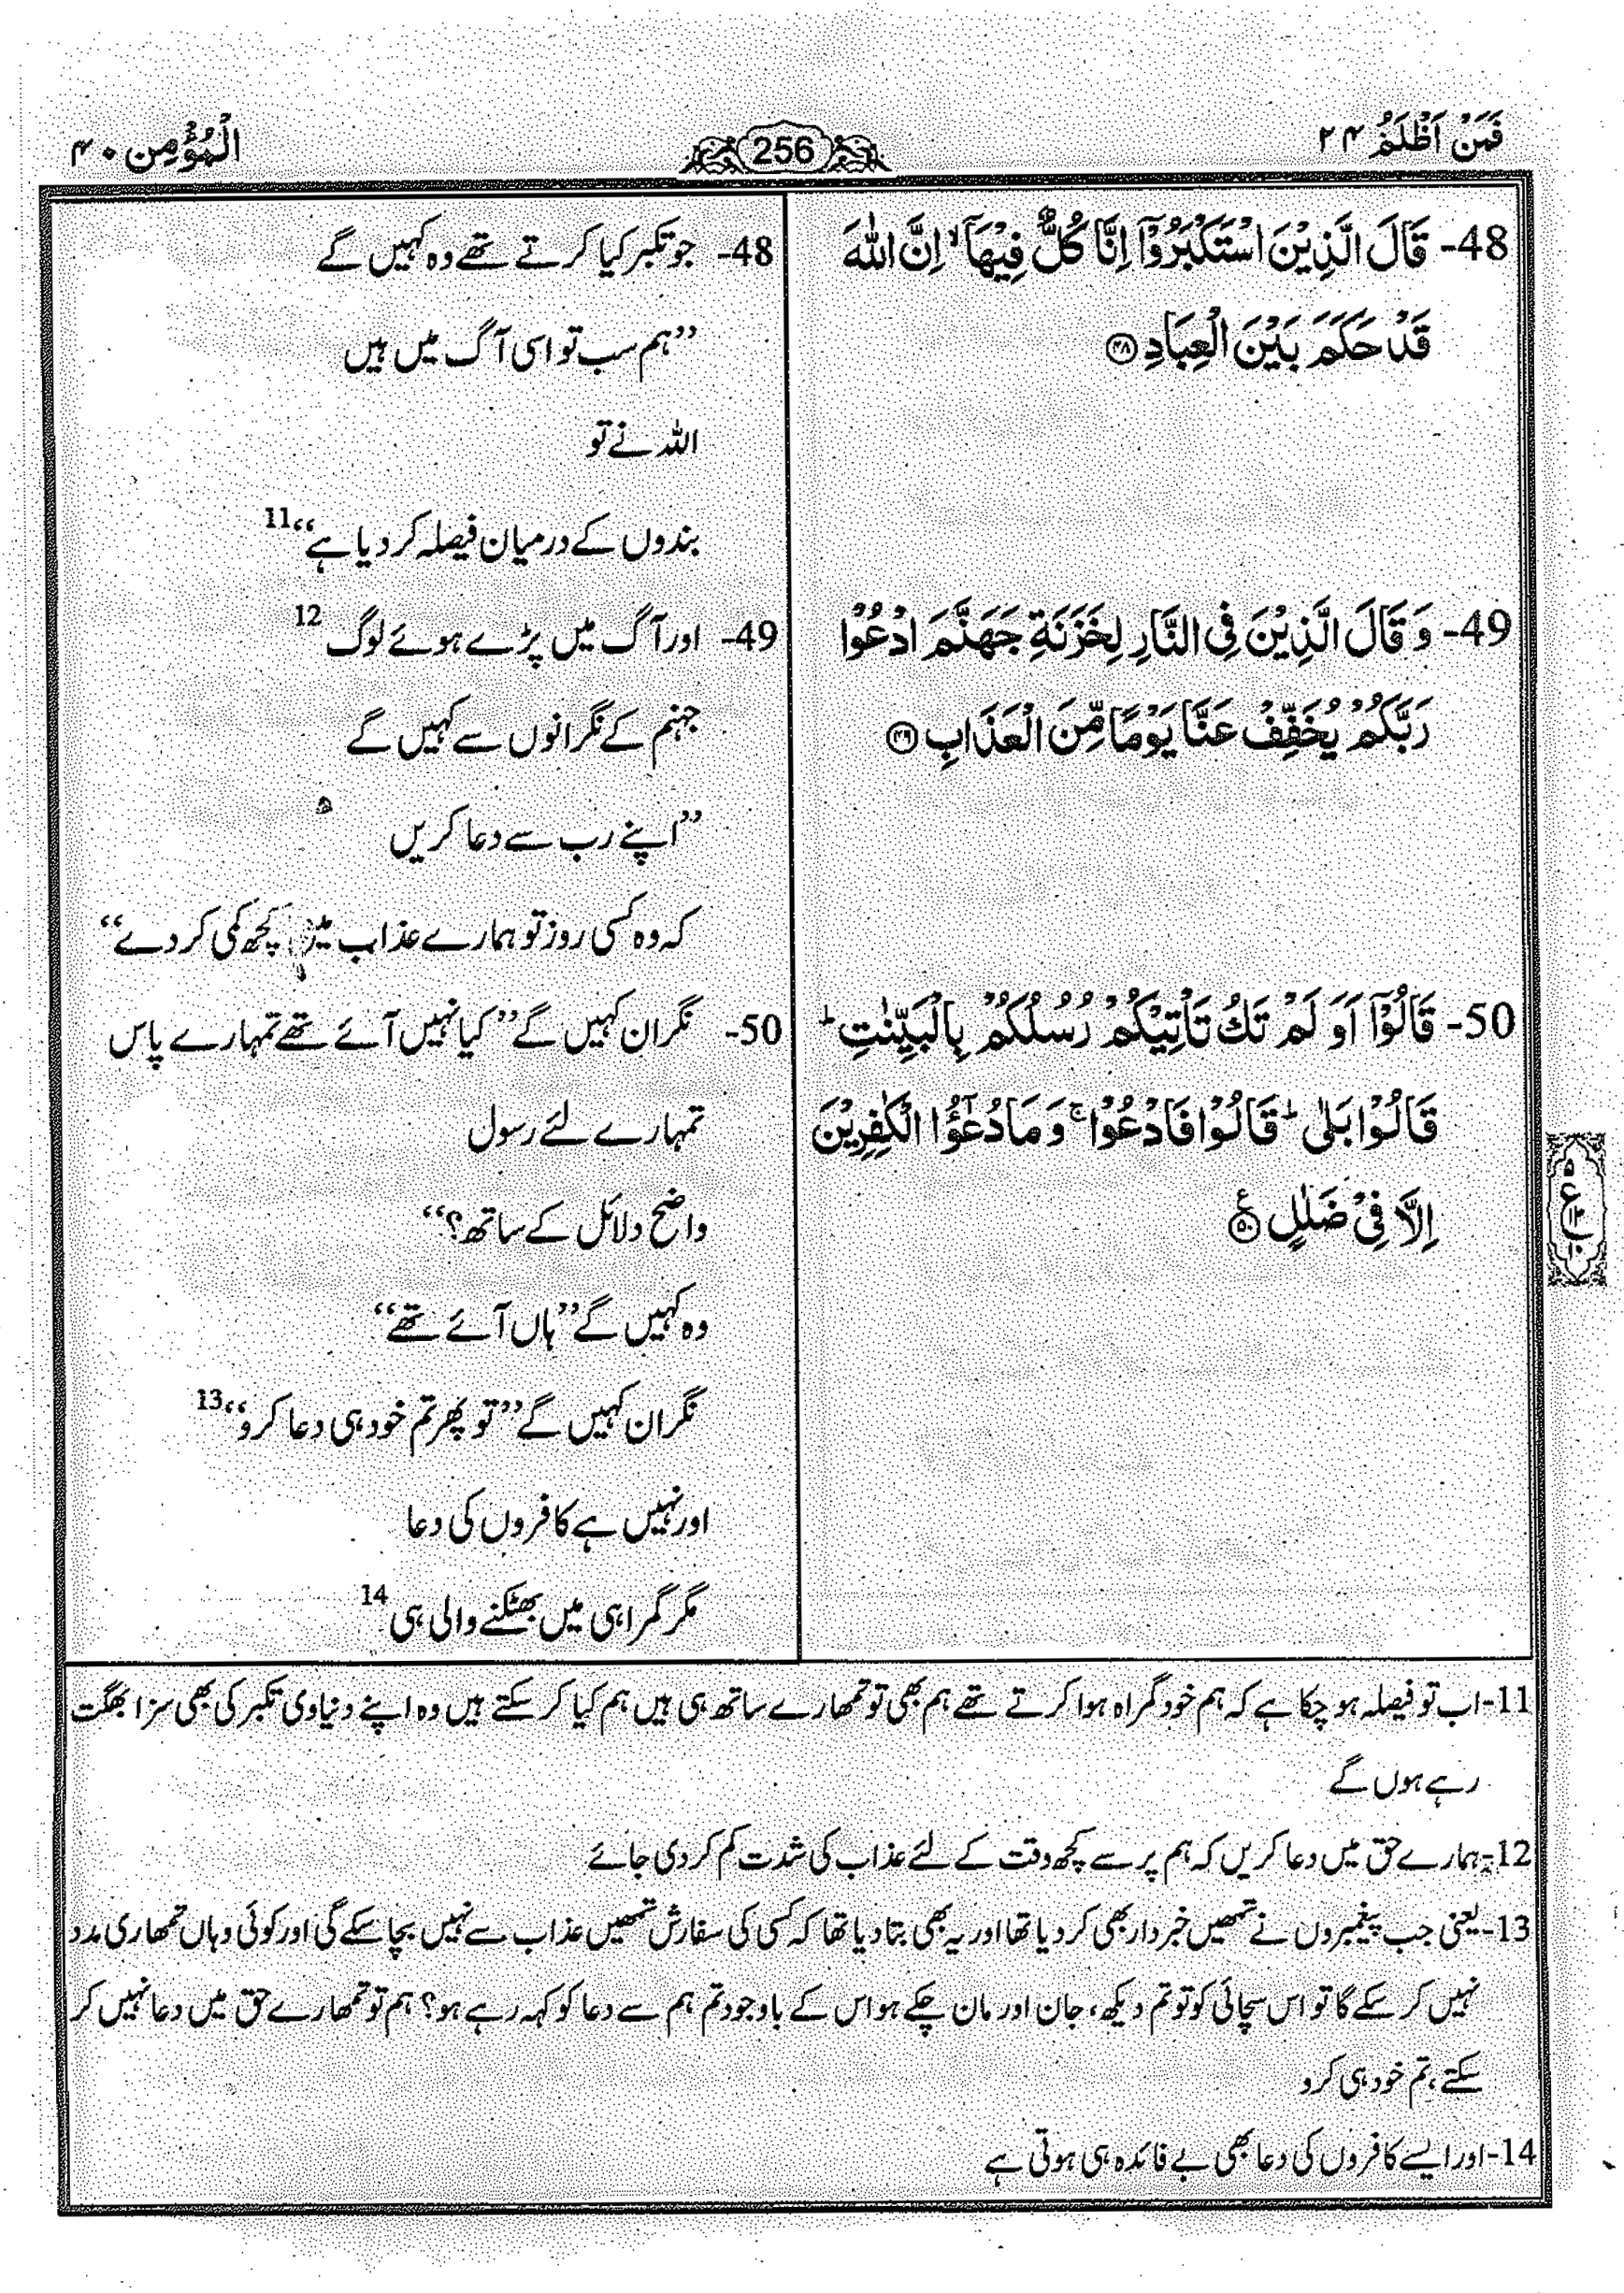 فَمَنْ اَظْلَمُ ۲۴
256
الْمُؤْمِن ۴۰
48- قَالَ الَّذِيْنَ اسْتَكْبَرُوْٓا اِنَّا كُلٌّ فِيْهَآ ۙ اِنَّ اللّٰهَ
قَدْ حَكَمَ بَيْنَ الْعِبَادِ ﴿۴۸﴾
49- وَ قَالَ الَّذِيْنَ فِى النَّارِ لِخَزَنَةِ جَهَنَّمَ ادْعُوْا
رَبَّكُمْ يُخَفِّفْ عَنَّا يَوْمًا مِّنَ الْعَذَابِ ﴿۴۹﴾
50- قَالُوْٓا اَوَ لَمْ تَكُ تَاْتِيْكُمْ رُسُلُكُمْ بِالْبَيِّنٰتِ ؕ
قَالُوْا بَلٰى ؕ قَالُوْا فَادْعُوْا ۚ وَ مَا دُعٰٓؤُا الْكٰفِرِيْنَ
اِلَّا فِىْ ضَلٰلٍ ﴿۵۰﴾ ع
48- جو تکبر کیا کرتے تھے وہ کہیں گے
”ہم سب تو اسی آگ میں ہیں
اللہ نے تو
بندوں کے درمیان فیصلہ کر دیا ہے“ 11
49- اور آگ میں پڑے ہوئے لوگ 12
جہنم کے نگرانوں سے کہیں گے
”اپنے رب سے دعا کریں
کہ وہ کسی روز تو ہمارے عذاب میں کچھ کمی کر دے“
50- نگران کہیں گے ”کیا نہیں آئے تھے تمہارے پاس
تمہارے لئے رسول
واضح دلائل کے ساتھ؟“
وہ کہیں گے ”ہاں آئے تھے“
نگران کہیں گے ”تو پھر تم خود ہی دعا کرو“ 13
اور نہیں ہے کافروں کی دعا
مگر گمراہی میں بھٹکنے والی ہی 14
11-اب تو فیصلہ ہو چکا ہے کہ ہم خود گمراہ ہوا کرتے تھے ہم بھی تو تمھارے ساتھ ہی ہیں ہم کیا کر سکتے ہیں وہ اپنے دنیاوی تکبر کی بھی سزا بھگت
رہے ہوں گے
12-ہمارے حق میں دعا کریں کہ ہم پر سے کچھ وقت کے لئے عذاب کی شدت کم کر دی جائے
13-یعنی جب پیغمبروں نے تمھیں خبردار بھی کر دیا تھا اور یہ بھی بتا دیا تھا کہ کسی کی سفارش تمھیں عذاب سے نہیں بچا سکے گی اور کوئی وہاں تمھاری مدد
نہیں کر سکے گا تو اس سچائی کو تو تم دیکھ، جان اور مان چکے ہو اس کے باوجود تم ہم سے دعا کو کہہ رہے ہو؟ ہم تو تمھارے حق میں دعا نہیں کر
سکتے، تم خود ہی کرو
14-اور ایسے کافروں کی دعا بھی بے فائدہ ہی ہوتی ہے